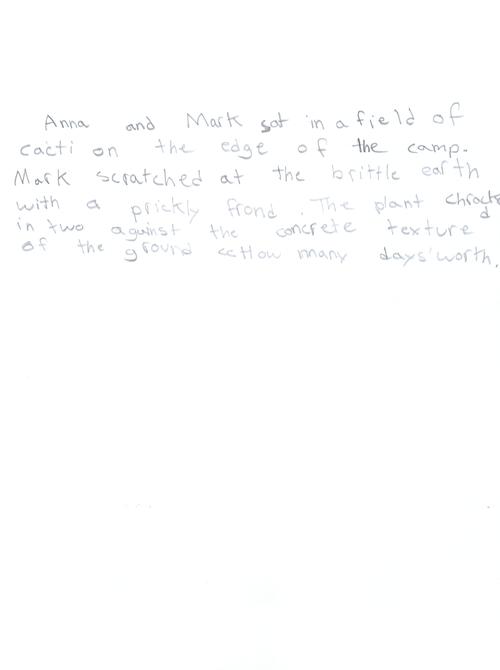 Anna and Mark sat in a field of
cacti on the edge of the camp.
Mark scratched at the brittle earth
with a prickly frond. The plant
in two against the concrete texture
of the ground "How many days' worth.